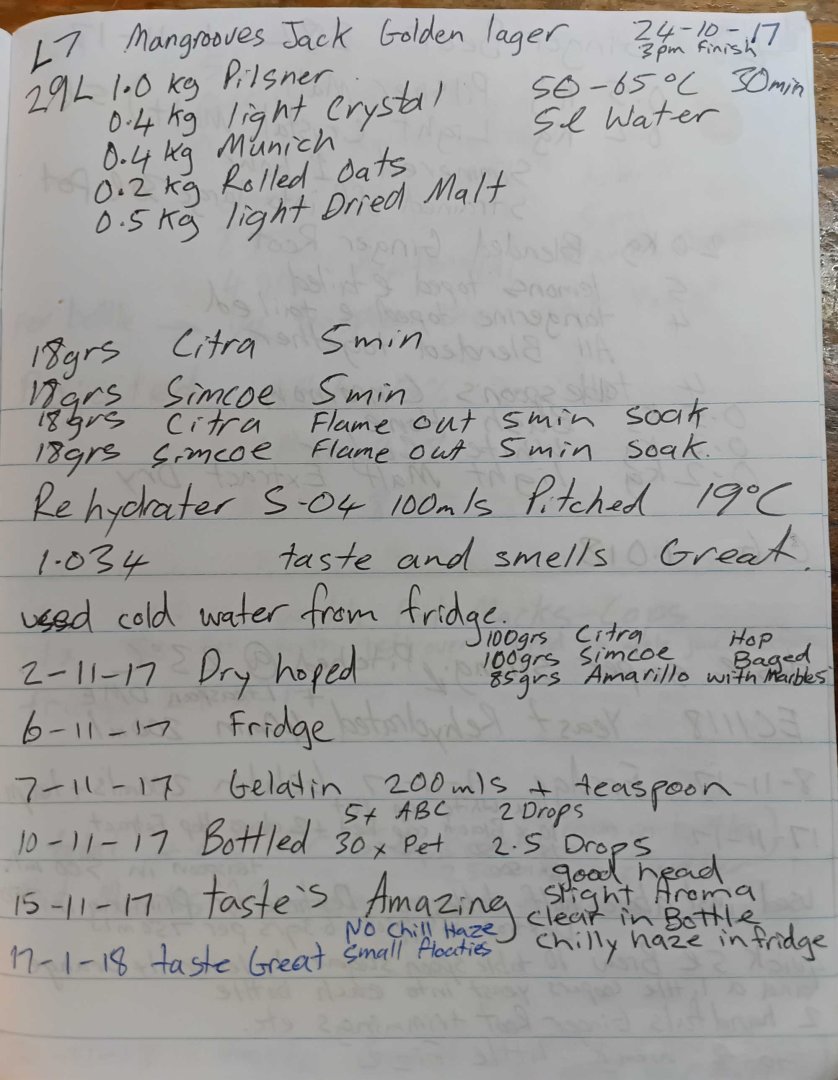 L7 Mangrooves Jack Golden lager 24-10-17
3pm finish
29L 1.0 kg Pilsner 50-65°C 30min
0.4 kg light Crystal 5.l Water
0.4 kg Munich
0.2 kg Rolled Oats
0.5 Kg light Dried Malt
18grs Citra 5min
18grs Simcoe 5min
18grs Citra Flame out 5min soak
18grs Simcoe Flame out 5min soak.
Rehydrater S-04 100mls Pitched 19°C
1.034 taste and smells Great.
used cold water from fridge.
100grs Citra Hop
2-11-17 Dry hoped 100grs Simcoe Baged
85grs Amarillo with Marbles
6-11-17 Fridge
7-11-17 Gelatin 200mls + teaspoon
5x ABC 2 Drops
10-11-17 Bottled 30x Pet 2.5 Drops
good head
15-11-17 taste's Amazing slight Aroma
clear in Bottle
chilly haze in fridge
No Chill Haze
17-1-18 taste Great small floaties